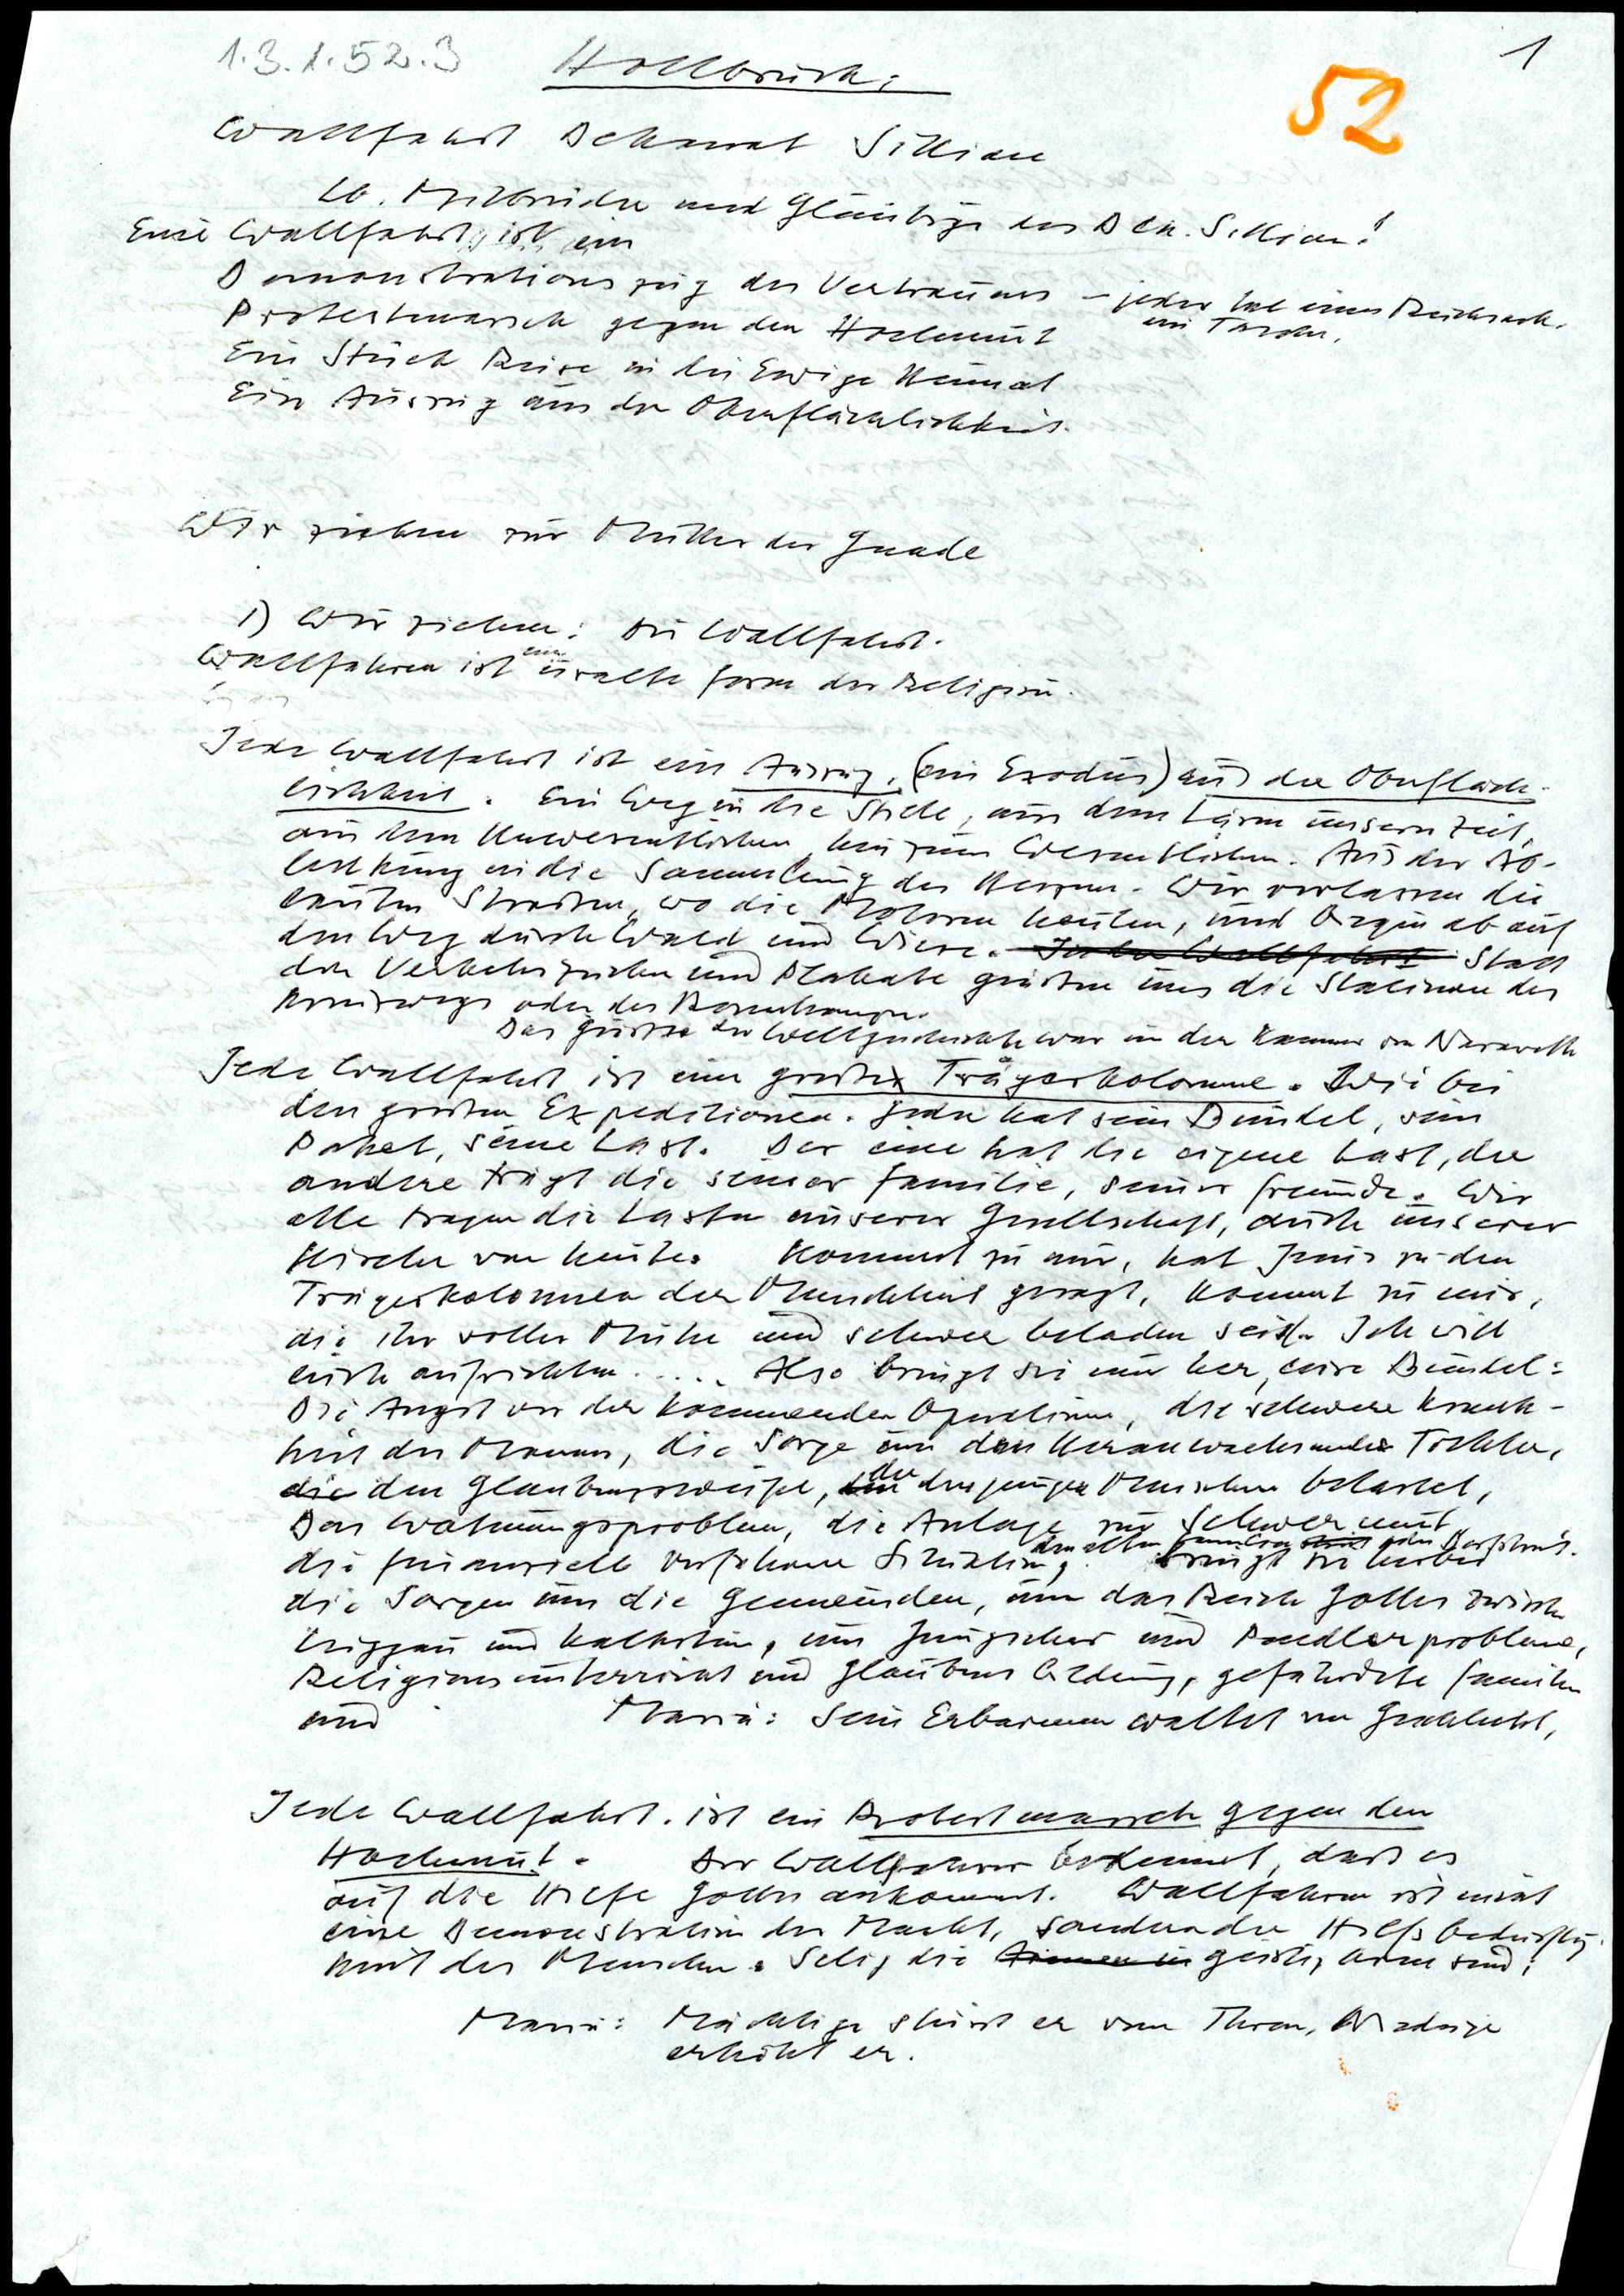 1.3.1.52.3
Hollbruck:
1
52
Wallfahrt Dekanat Sillian
Lb. Mitbrüder und Gläubige des Dek. Sillian!
Eine Wallfahrt ist ein
Demonstrationszug des Vertrauens – jeder hat einen Rucksack.
ein Tasche.
Protestmarsch gegen den Hochmut
Ein Stück Reise in die Ewige Heimat
Ein Auszug aus der Oberflächlichkeit.
Wir ziehen zur Mutter der Gnade
1) Wir ziehen: Die Wallfahrt.
Wallfahren ist eine uralte Form der Religion.
Jede Wallfahrt ist ein Auszug, (ein Exodus) aus der Oberfläch-
lichkeit. Ein Weg in die Stille, aus dem Lärm unserer Zeit,
aus dem Unwesentlichen hin zum Wesentlichen. Aus der Ab-
lenkung in die Sammlung des Herzens. Wir verlassen die
lauten Strassen, wo die Motoren heulen, und biegen ab auf
den Weg durch Wald und Wiese. Jede Wallfahrt Statt
den Verkehrszeichen und Plakate grüssen uns die Stationen des
Kreuzwegs oder des Rosenkranzes.
Das Grösste der Weltgeschichte war in der Kammer von Nazareth
Jede Wallfahrt ist eine grosse Trägerkolonne. Wie bei
den grossen Expeditionen. Jeder hat sein Bündel, sein
Paket, seine Last. Der eine hat die eigene Last, der
andere trägt die seiner Familie, seiner Freunde. Wir
alle tragen die Lasten unserer Gesellschaft, auch unserer
Kirche von heute. Kommt zu mir, hat Jesus zu den
Trägerkolonnen der Menschheit gesagt, kommt zu mir,
die ihr voller Mühe und schwer beladen seid. Ich will
euch aufrichten..... Also bringt sie nur her, eure Bündel:
Die Angst vor der kommenden Operation, die schwere Krank-
heit des Mannes, die Sorge um den Heranwachsenden Tochter,
die den Glaubenszweifel, der den jungen Menschen belastet,
Das Wohnungsproblem, die Anlage zur Schwermut
die finanziell verfahrene Situation, bringt sie herbei
die Sorgen um die Gemeinden, um das Reich Gottes zwischen
und Kalkstein, um Jungschar und Pendlerprobleme,
Religionsunterricht und Glaubens bildung, gefährdete Familien
und Maria: Sein Erbarmen waltet von Geschlecht,
Jede Wallfahrt. ist ein Protestmarsch gegen den
Hochmut. Der Wallfahrer bekennt, dass es
auf die Hilfe Gottes ankommt. Wallfahren ist nicht
eine Demonstration der Macht, sondern der Hilfsbedürftig-
keit des Menschen. Selig die Armen im geistig arm sind;
Maria: Mächtige stürzt er vom Thron, Niedrige
erhöht er.